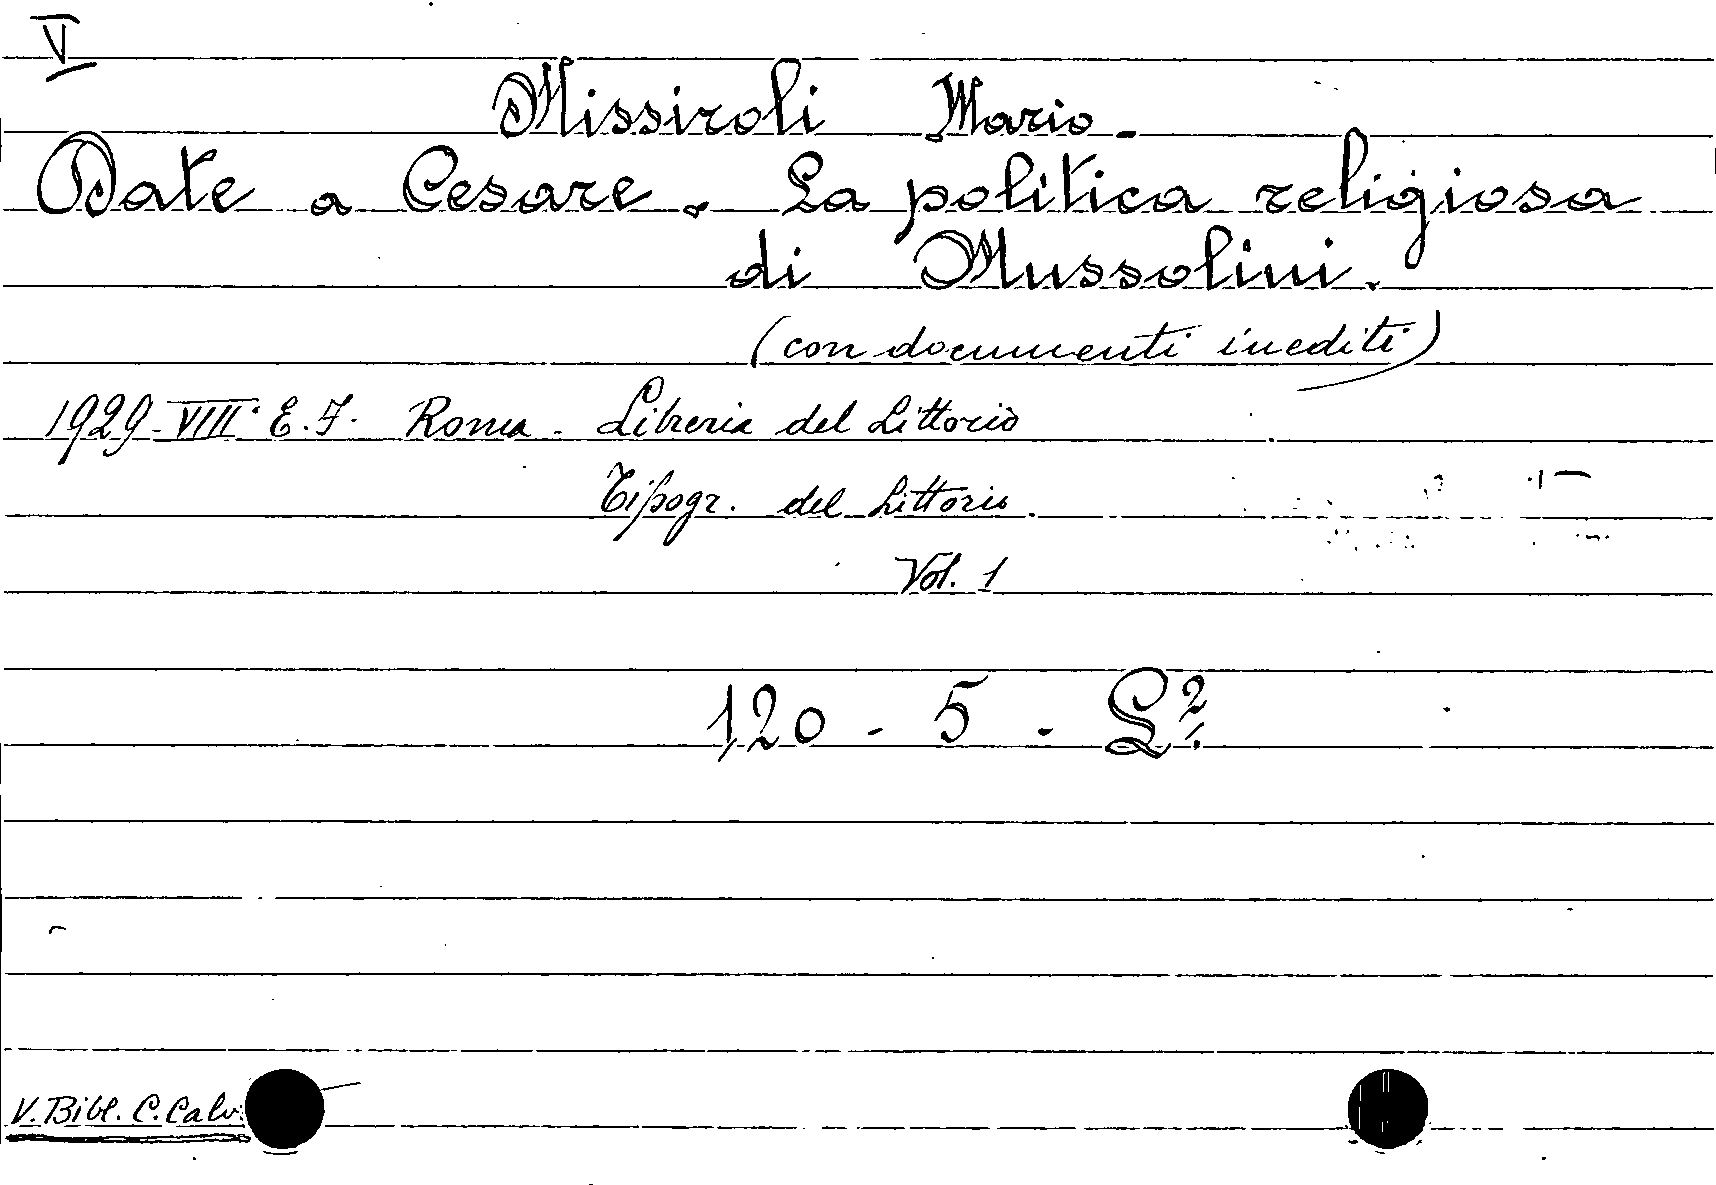 V
Missiroli Mario.
Date a Cesare. La politica religiosa
di Mussolini.
(con documenti inediti)
1929-VIII. E.F. Roma - Libreria del Littorio
Tipogr. del Littorio.
Vol. 1
120 - 5 - L².
V. Bibl. C. Calv.